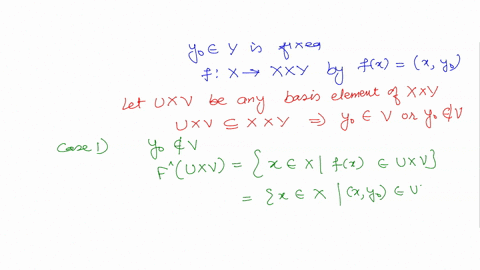 y₀ ∈ Y is fixed
f: X → X×Y by f(x) = (x, y₀)
Let U×V be any basis element of X×Y
U×V ⊆ X×Y ⇒ y₀ ∈ V or y₀ ∉ V
Case 1) y₀ ∉ V
F^(U×V) = {x ∈ X | f(x) ∈ U×V}
= {x ∈ X | (x, y₀) ∈ U